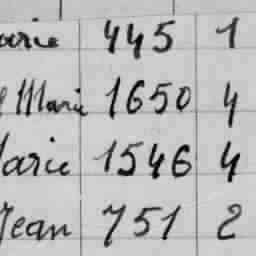 arie 445 1
Marie 1650 4
Marie 1546 4
Jean 751 2